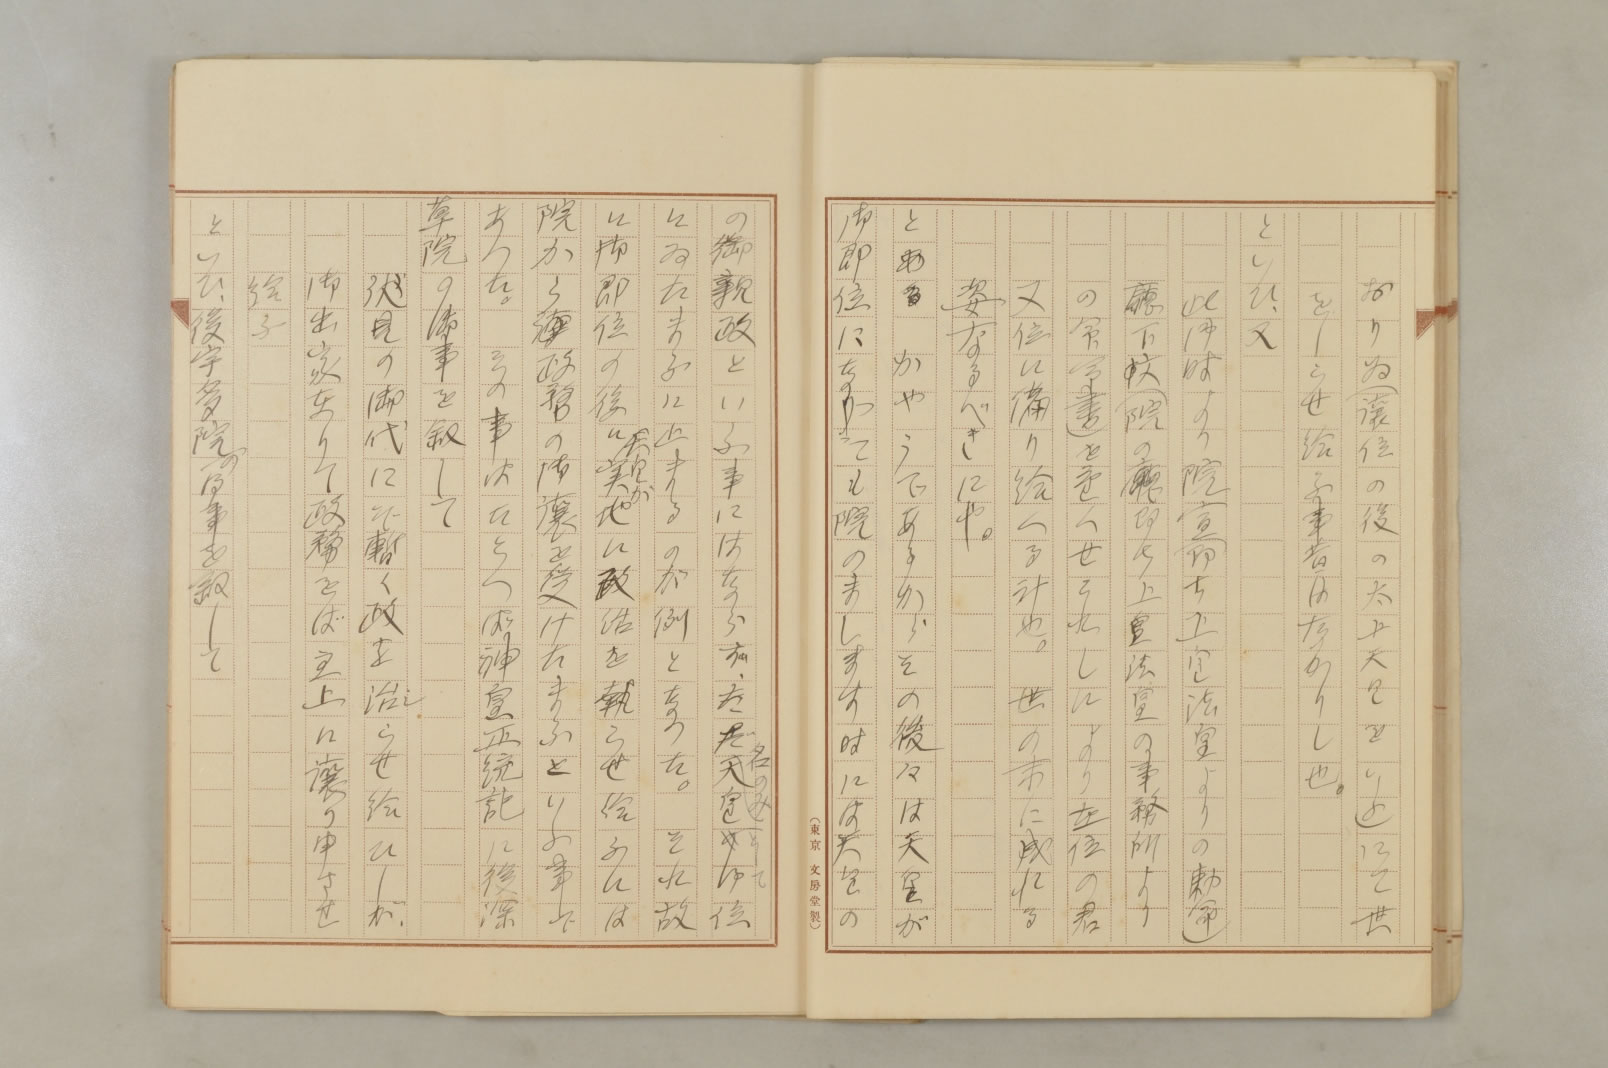 おりゐ(譲位の後の太上天皇をいふ)にて世
をしらせ給ふ事昔はなかりし也。
といひ、又
此御時より院宣(即ち上皇法皇よりの勅命)
廳下文(院の廳即ち上皇法皇の事務所より
の命令書)を重くせられしによりて在位の君
又位に備り給へる計也。世の末に成れる
姿なるべきにや。
とある かやうであるからその後々は天皇が
御即位になつても院のまします時には天皇の
の御親政といふ事にはならず、たゞ天皇の御位
名のみとして
にゐたまふに止まるのが例となつた。それ故
に御即位の後に実地に政治を執らせ給ふには
天皇が
院から政務の御譲を受けたまふといふ事で
あつた。その事はたとへば神皇正統記に後深
草院の御事を叙して
伏見の御代にぞ暫く政を治らせ給ひしが、
御出家ありて政務をば主上に譲り申させ
給ふ
といひ、後宇多院の御事を叙して
(東京 文房堂製)